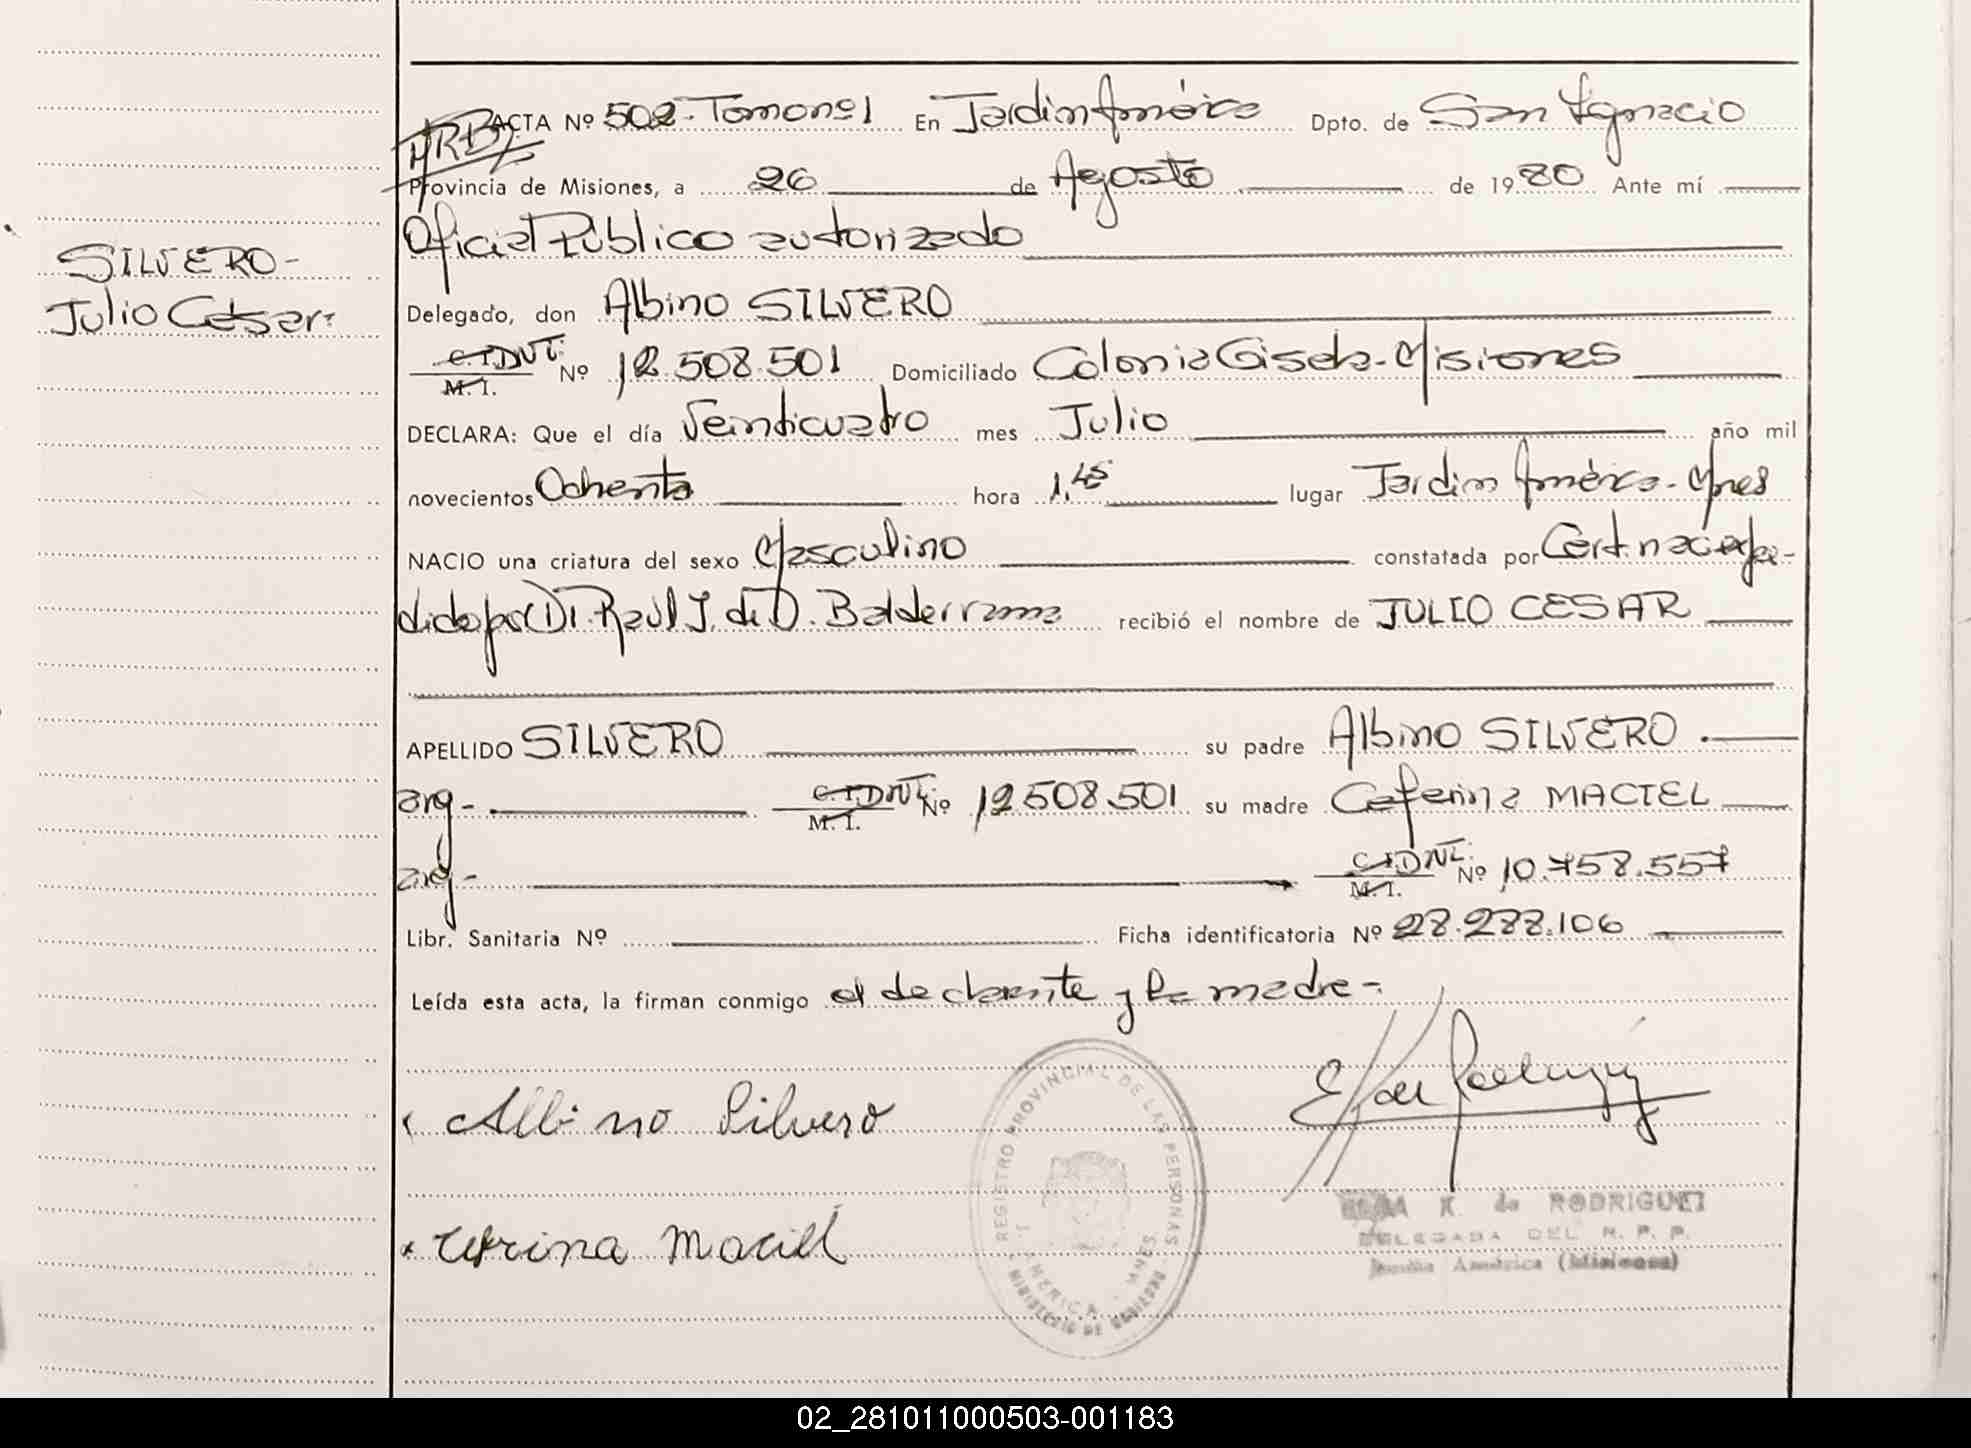 ACTA Nº 502- Tomo nº1 En Jardin América Dpto. de San Ignacio
Provincia de Misiones, a 26 de Agosto de 1980 Ante mí
Oficial Público autorizado
SILVERO-
Julio César:
Delegado, don Albino SILVERO
C.I. DNI. M. I. Nº 12.508.501 Domiciliado Colonia Gisela-Misiones
DECLARA: Que el día Veinticuatro mes Julio año mil
novecientos Ochenta hora 1,45 lugar Jardin América-Mnes
NACIO una criatura del sexo Masculino constatada por Cert. nac. expe-
dido por Dr. Raúl J. de D. Balderrama recibió el nombre de JULIO CESAR
APELLIDO SILVERO su padre Albino SILVERO.
arg- C.I. DNI. M. I. Nº 12508.501 su madre Ceferina MACIEL
arg- C.I. DNI. M. I. Nº 10.758.557
Libr. Sanitaria Nº Ficha identificatoria Nº 28.288.106
Leída esta acta, la firman conmigo el declarante y la madre-
Albino Silvero
REGISTRO PROVINCIAL DE LAS PERSONAS
J. AMERICA - MNES.
MINISTERIO DE GOBIERNO
K. de RODRIGUEZ
DELEGADA DEL R. P. P.
Jardín América (Misiones)
Maciel
02_281011000503-001183